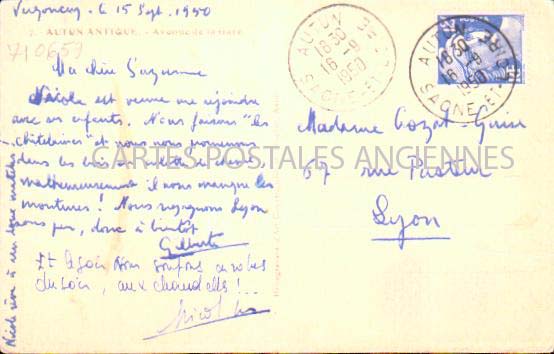 le 15 Sept. 1950
7. AUTUN ANTIQUE. - Avenue de la Gare
710653
Ma chère Suzanne
Nicole est venue me rejoindre
avec ses enfants. Nous faisons "les
châtelaines" et nous nous promenons
dans les
malheureusement il nous manque les
montures! Nous regagnons Lyon
sous peu, donc à bientôt
Gilberte
Et le soir nous soupons en robes
du soir, aux chandelles!...
Nicole
AUTUN
18H30
16-9
1950
SAONE-ET-LOIRE
AUTUN
18H30
16-9
1950
SAONE-ET-LOIRE
Madame
67 rue Pasteur
Lyon
CARTES POSTALES ANCIENNES